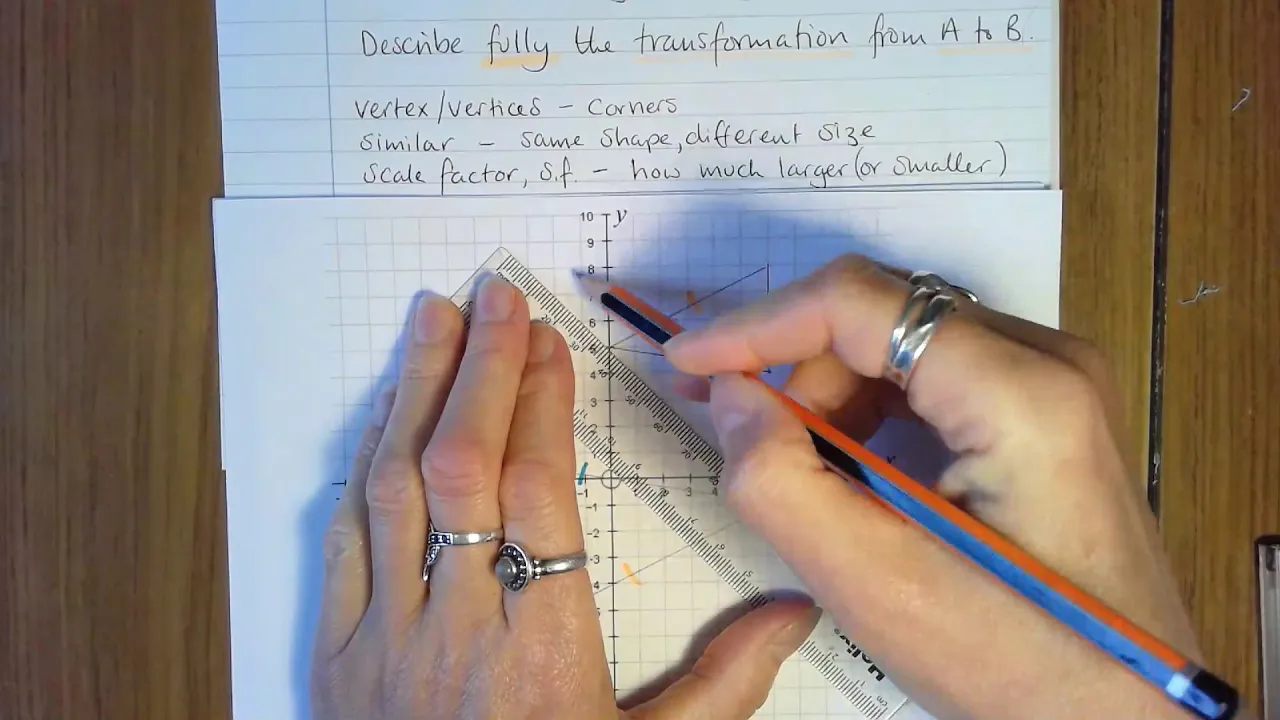 Describe fully the transformation from A to B.
vertex/vertices – corners
similar – same shape, different size
scale factor, s.f. – how much larger (or smaller)
10 y
9
8
6
4
3
2
-1 2 3 4
-1
-2
-3
-4
Helix